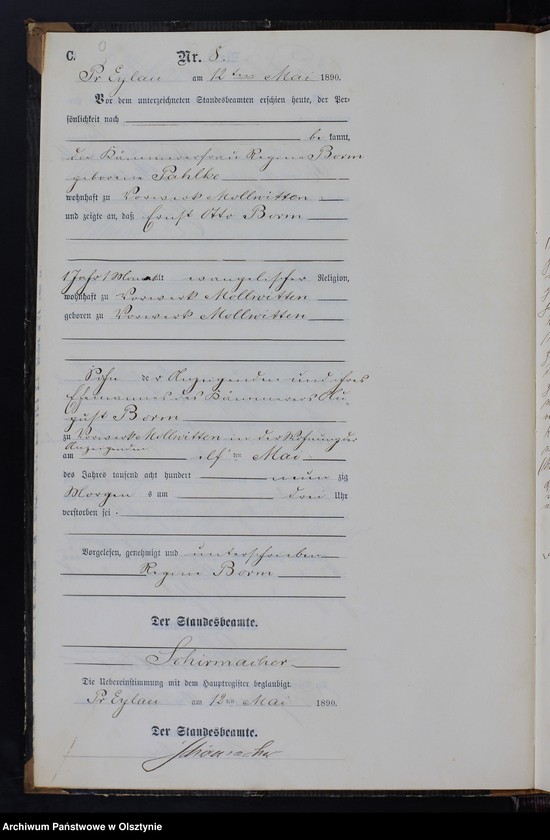 C.
Nr. 8.
Pr Eylau am 12ten Mai 1890.
Vor dem unterzeichneten Standesbeamten erschien heute, der Per-
sönlichkeit nach
be kannt,
die Kämmererfrau Regine Borm
geborene Pahlke
wohnhaft zu Vorwerk Mollwitten
und zeigte an, daß Ernst Otto Borm
1 Jahr 1 Monat alt evangelischer Religion,
wohnhaft zu Vorwerk Mollwitten
geboren zu Vorwerk Mollwitten
Sohn der Anzeigenden und ihres
Ehemannes des Kämmerers Au-
gust Borm
zu Vorwerk Mollwitten in der Wohnung der
Anzeigenden
am elften Mai
des Jahres tausend acht hundert neun zig
Morgen s um drei Uhr
verstorben sei.
Vorgelesen, genehmigt und unterschrieben
Regine Borm
Der Standesbeamte.
Schirmacher
Die Uebereinstimmung mit dem Hauptregister beglaubigt.
Pr Eylau am 12ten Mai 1890.
Der Standesbeamte.
Schirmacher
Archiwum Państwowe w Olsztynie